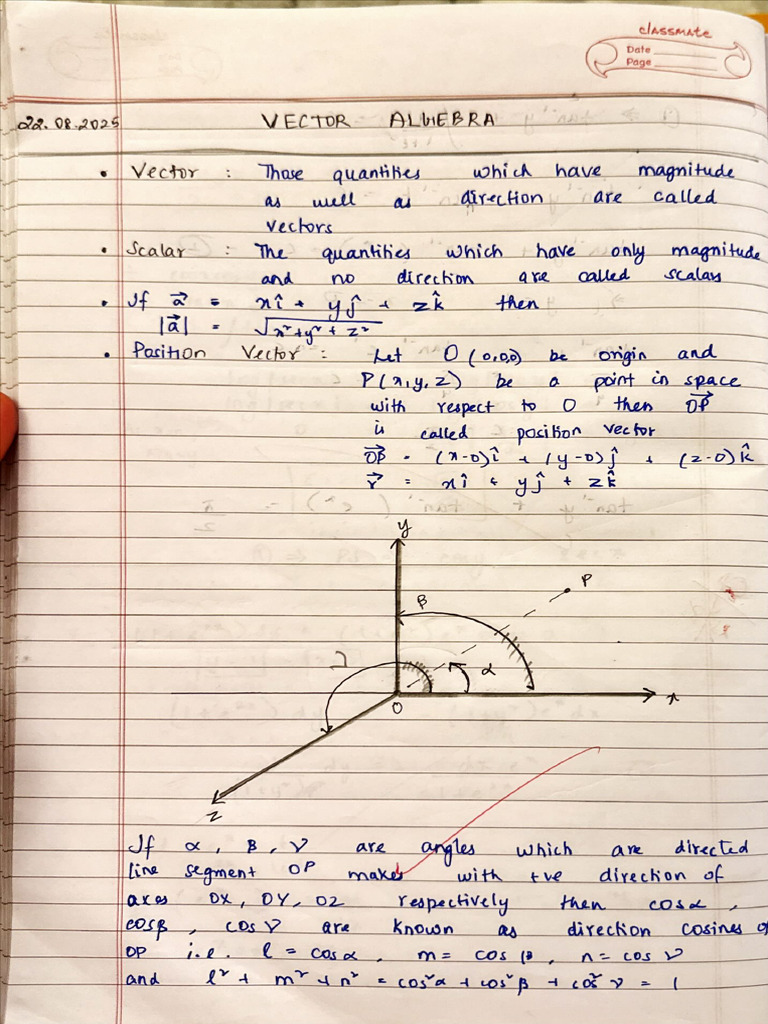 classmate
Date
Page
22.08.2025 VECTOR ALGEBRA
• Vector : Those quantities which have magnitude
as well as direction are called
vectors
• Scalar : The quantities which have only magnitude
and no direction are called scalars
• If a⃗ = xî + yĵ + zk̂ then
|a⃗| = √x²+y²+z²
• Position Vector : Let O(0,0,0) be origin and
P(x,y,z) be a point in space
with respect to O then OP⃗
is called position vector
OP⃗ = (x-0)î + (y-0)ĵ + (z-0)k̂
r⃗ = xî + yĵ + zk̂
y
P
β
α
x
O
z
If α, β, γ are angles which are directed
line segment OP makes with +ve direction of
axes OX, OY, OZ respectively then cosα,
cosβ, cosγ are known as direction cosines of
OP i.e. l = cosα, m = cosβ, n = cosγ
and l² + m² + n² = cos²α + cos²β + cos²γ = 1